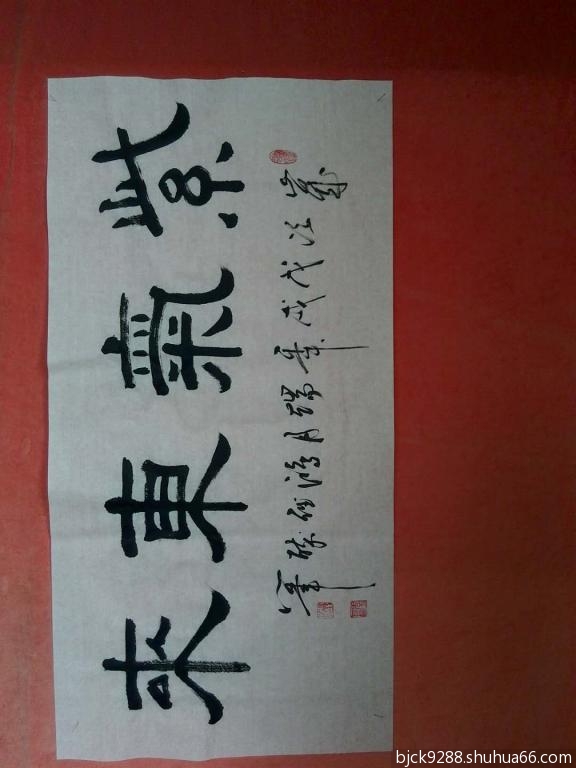 紫氣東來
歲次戊戌年瑞月
bjck9288.shuhua66.com